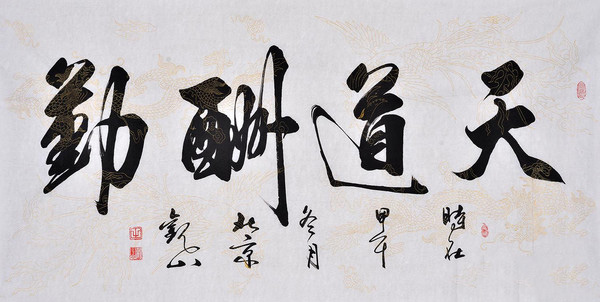 天道酬勤
時在
甲午
冬月
北京
觀山